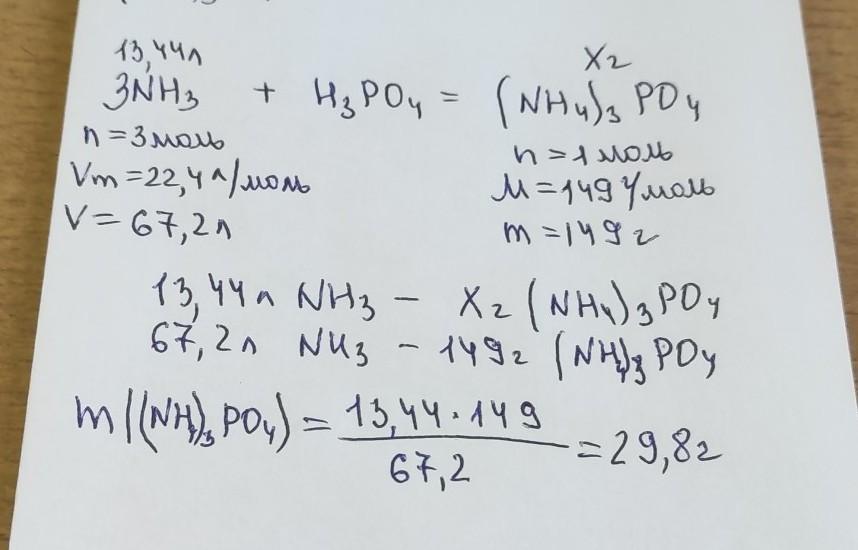 13,44л
Xг
3NH3 + H3PO4 = (NH4)3PO4
n=3моль
n=1моль
Vm=22,4л/моль
M=149г/моль
V=67,2л
m=149г
13,44л NH3 - Xг (NH4)3PO4
67,2л NH3 - 149г (NH4)3PO4
m((NH4)3PO4) = 13,44·149 / 67,2 = 29,8г